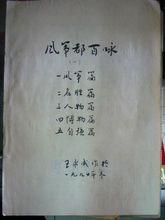 风筝都百咏
（一）
一 风筝篇
二 名胜篇
三 人物篇
四 博物篇
五 自语篇
王永武作於
一九九〇年冬